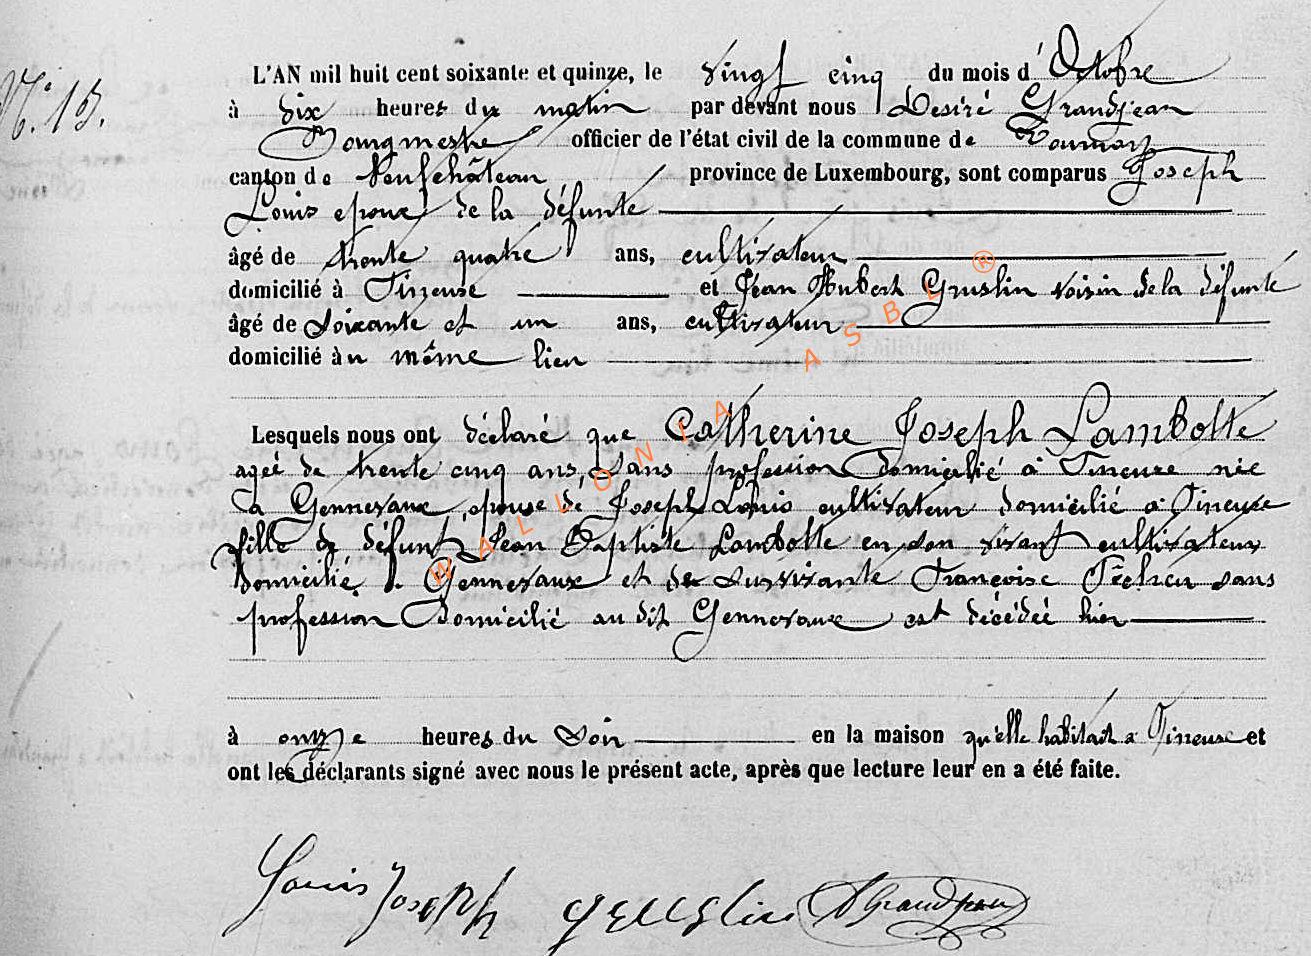 N° 15.
L'AN mil huit cent soixante et quinze, le vingt cinq du mois d'Octobre
à dix heures du matin par devant nous Desiré Grandjean
Bourgmestre officier de l'état civil de la commune de Tournay
canton de Neufchâteau province de Luxembourg, sont comparus Joseph
Louis epoux de la défunte
âgé de trente quatre ans, cultivateur
domicilié à Tineuse et Jean Hubert Gruslin voisin de la défunte
âgé de soixante et un ans, cultivateur
domicilié au même lieu
Lesquels nous ont déclaré que Catherine Joseph Lambotte
ageé de trente cinq ans, sans profession domicilié à Tineuse née
à Gennevaux, epouse de Joseph Louis cultivateur domicilié à Tineuse
fille de défunt Jean Baptiste Lambotte en son vivant cultivateur
domicilié à Gennevaux et de survivante Françoise sans
profession domicilié au dit Gennevaux est décédeé hier
à onze heures du soir en la maison qu'elle habitait a Tineuse et
ont les déclarants signé avec nous le présent acte, après que lecture leur en a été faite.
Louis Joseph Gruslin D Grandjean
WALLONIA ASBL ®